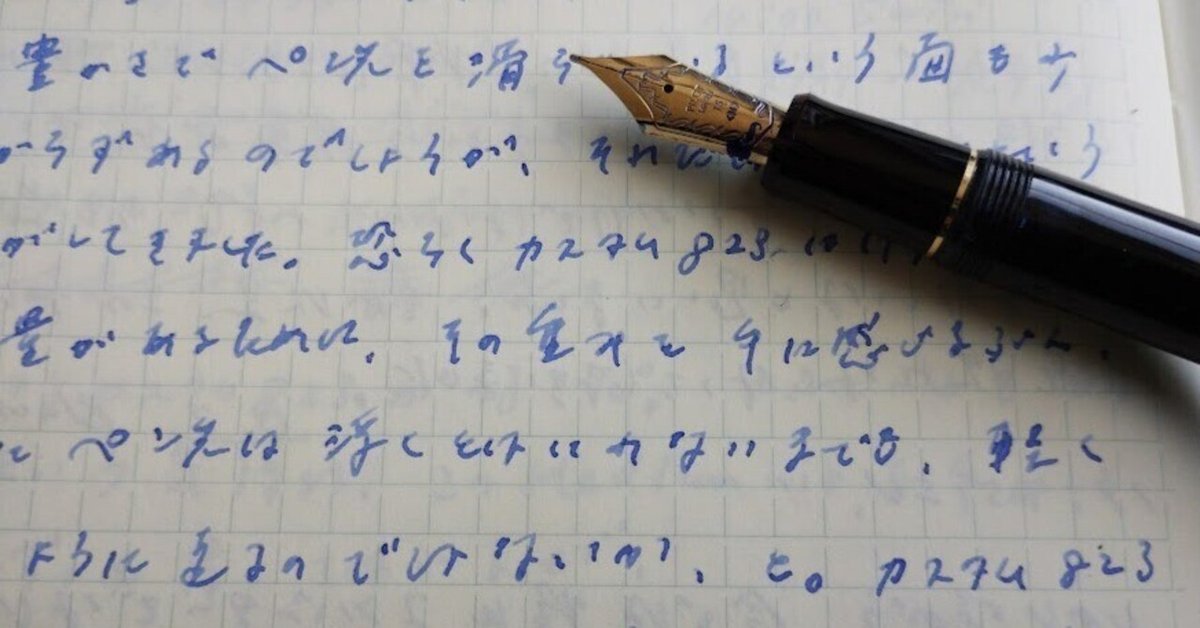 豊かさでペン先を滑ら いるという面も少
からずあるのでしょうが、それに いう
がしてきました。恐らくカスタム823には
量があるために、その重さを手に感じるぶん、
にペン先は浮くとはいかないまでも、軽く
ように走るのではないか、と。カスタム823